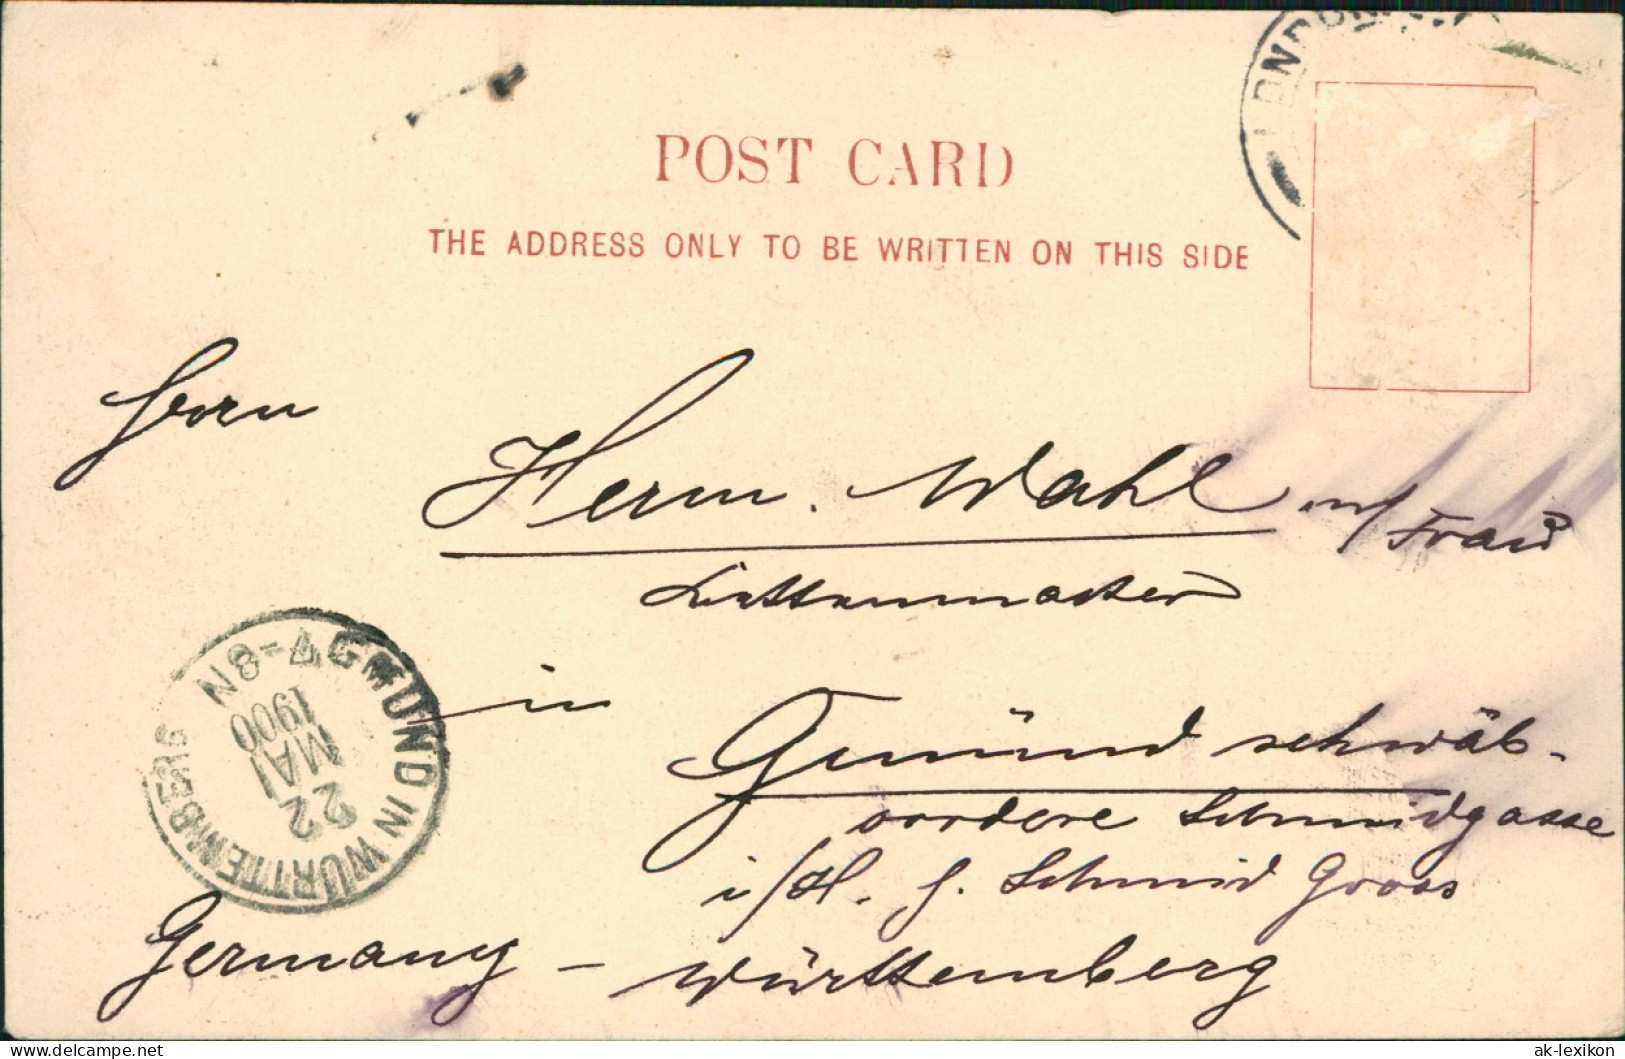 LONDON
POST CARD
THE ADDRESS ONLY TO BE WRITTEN ON THIS SIDE
Herrn
Herm. Wahl u/Frau
Kettenmacher
in
Gmünd schwäb.
vordere Schmidgasse
i/H. j. Schmid Gross
Germany – Württemberg
GMÜND IN WÜRTTEMBERG
22
MAI
1900
7-8N
delcampe.net
ak-lexikon